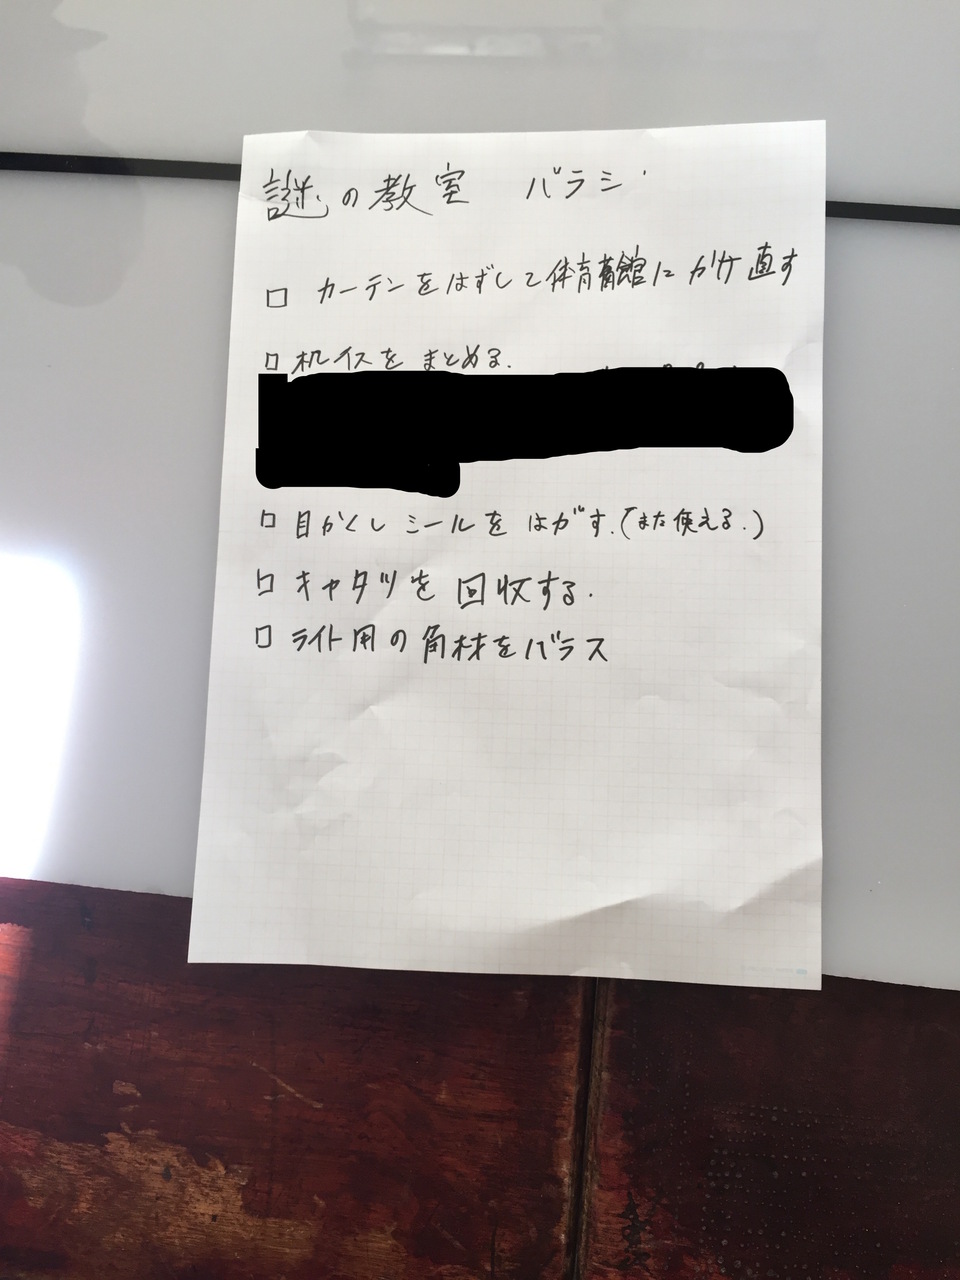 謎の教室 バラシ
□ カーテンをはずして体育館にかけ直す
□ 机イスをまとめる.
□ 目かくしシールをはがす.(また使える.)
□ キャタツを回収する.
□ ライト用の角材をバラス